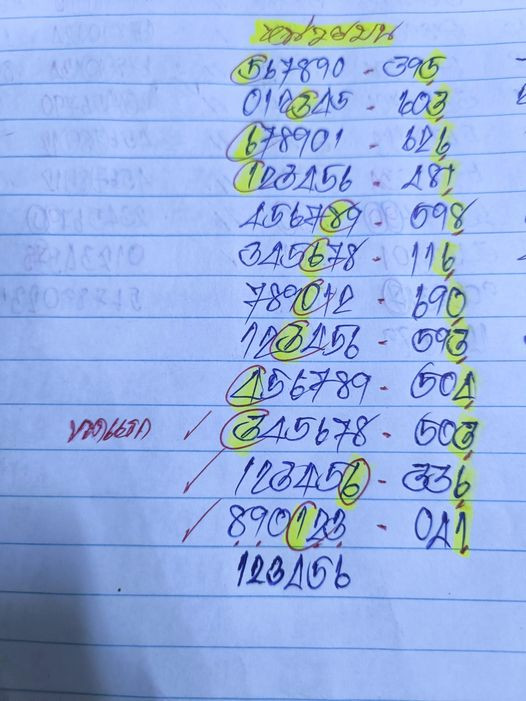 หน่วยบน
567890 - 395
012345 - 603
678901 - 626
123456 - 481
456789 - 598
345678 - 116
789012 - 690
123456 - 593
456789 - 504
✓ 345678 - 503
✓ 123456 - 336
✓ 890123 - 041
123456